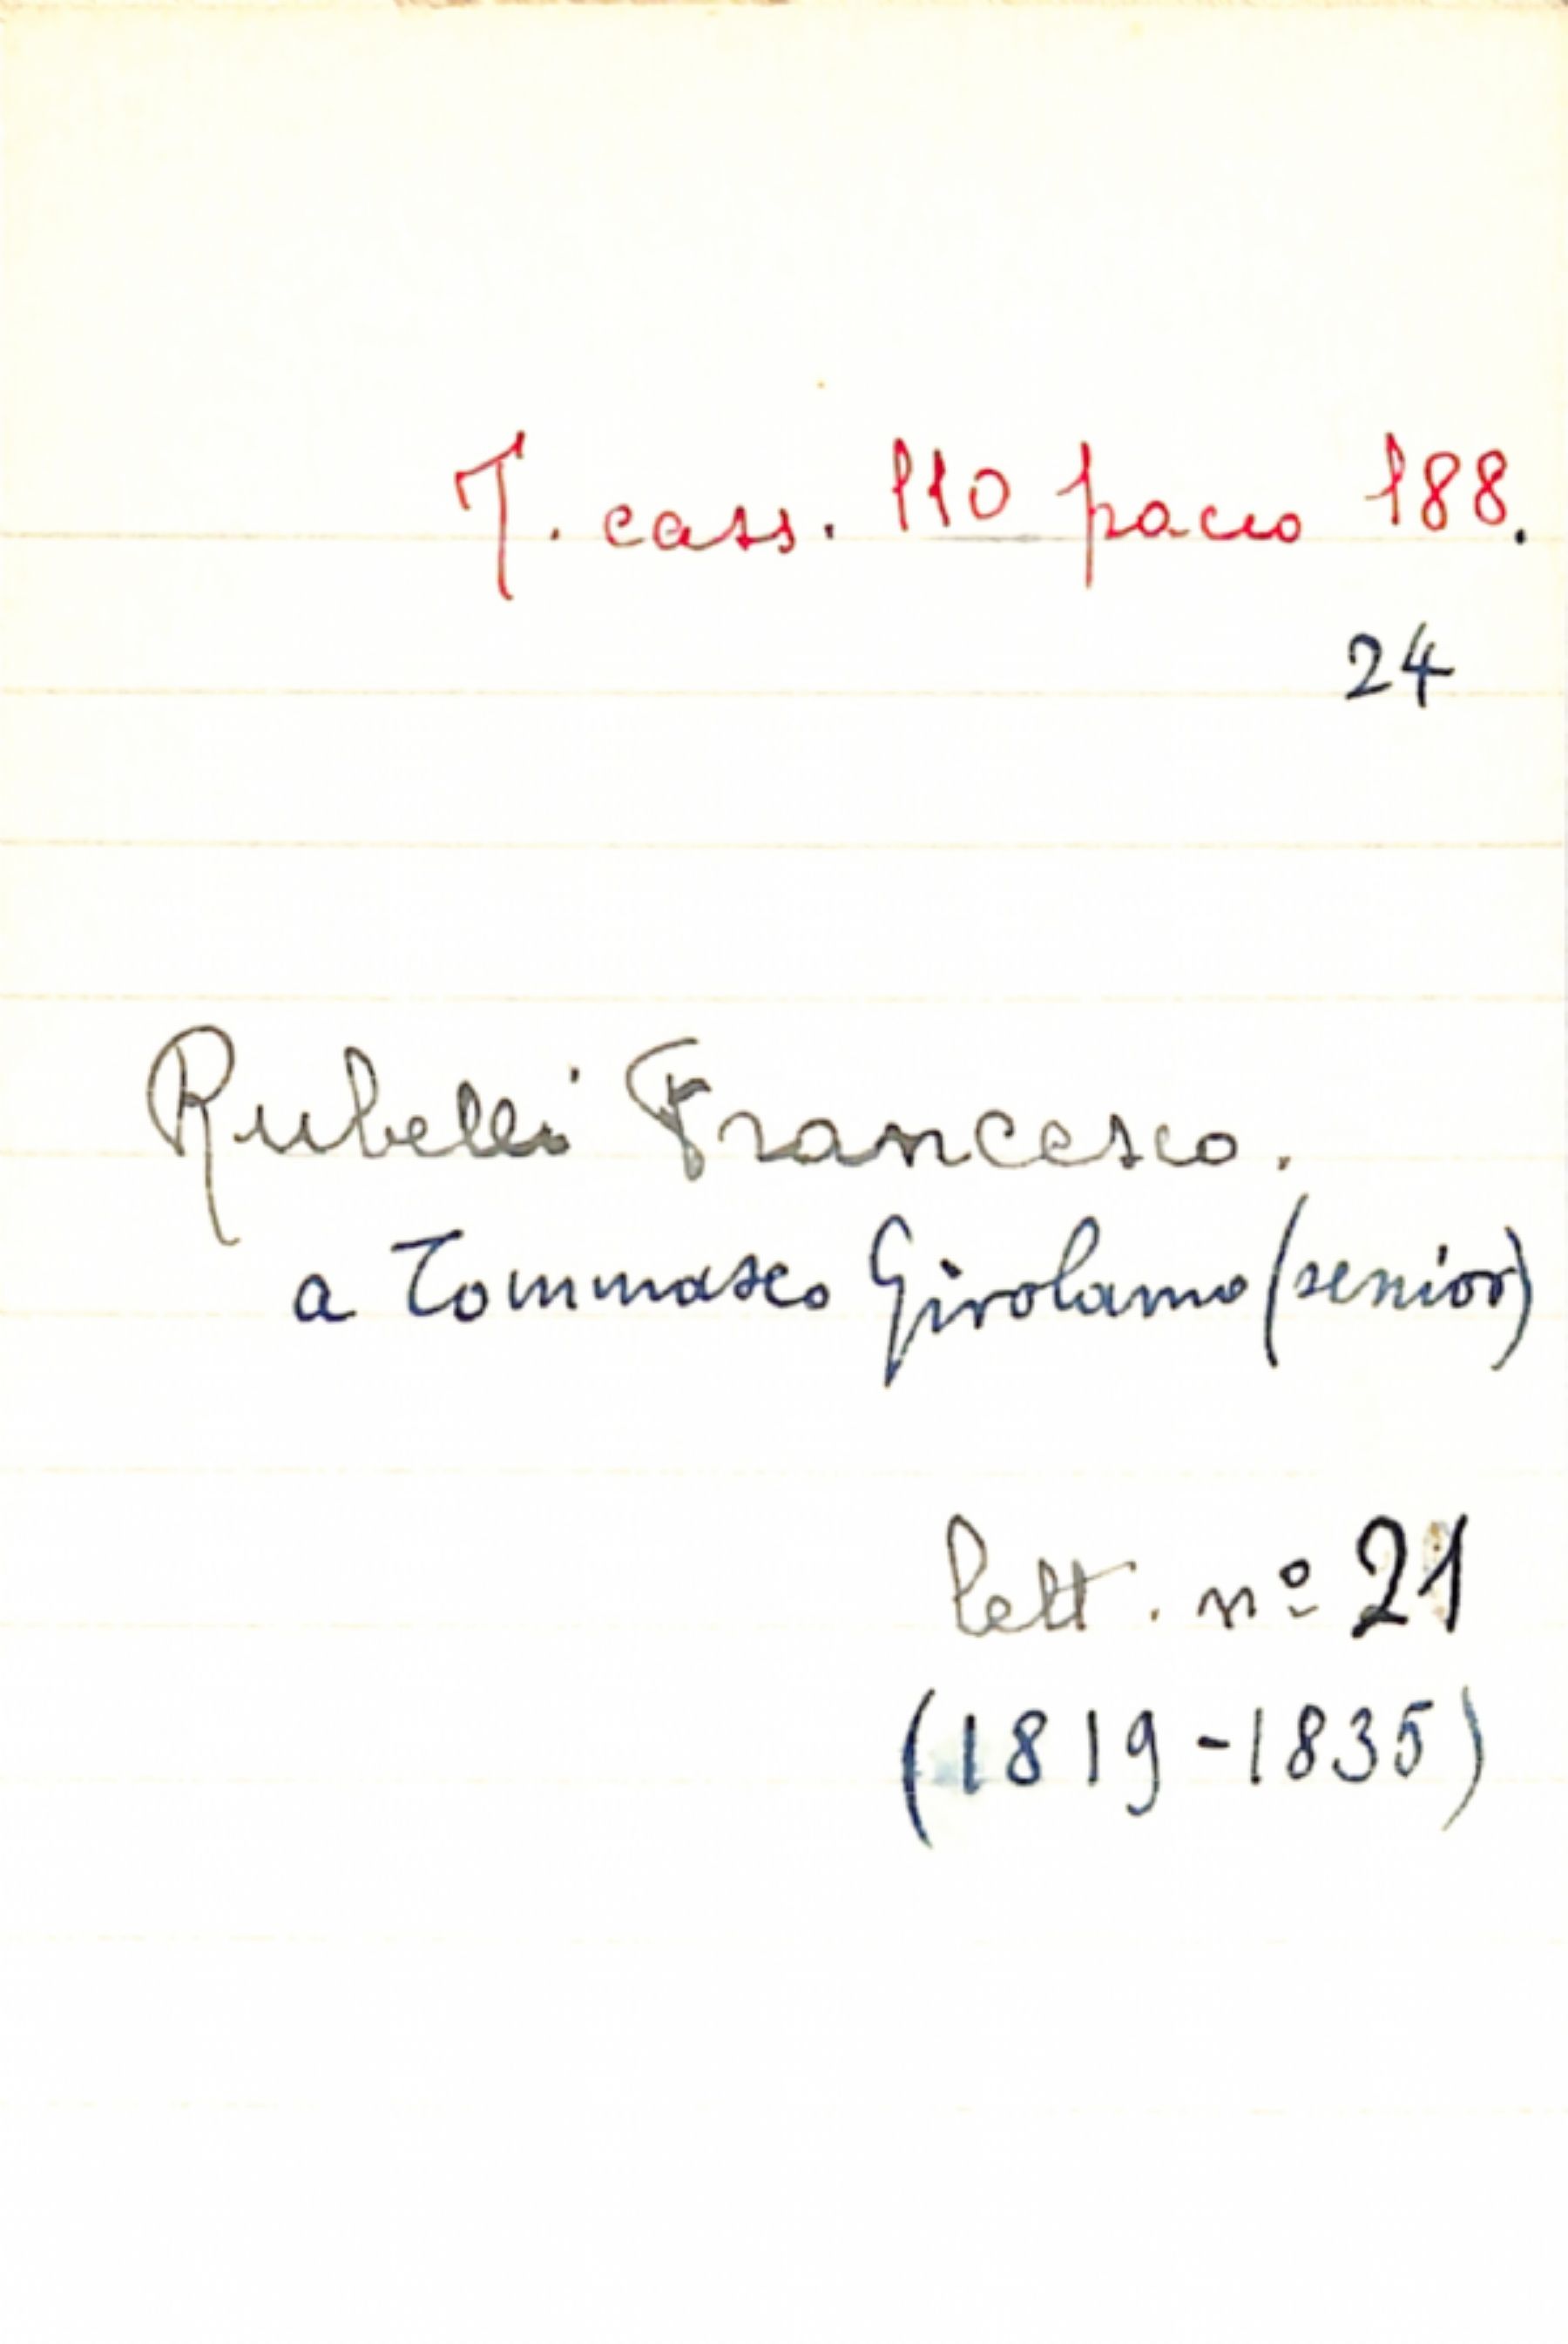 T. cass. 110 pacco 188.
24
Rubelli Francesco.
a Tommasco Girolamo (senior)
lett. nº 21
(1819-1835)